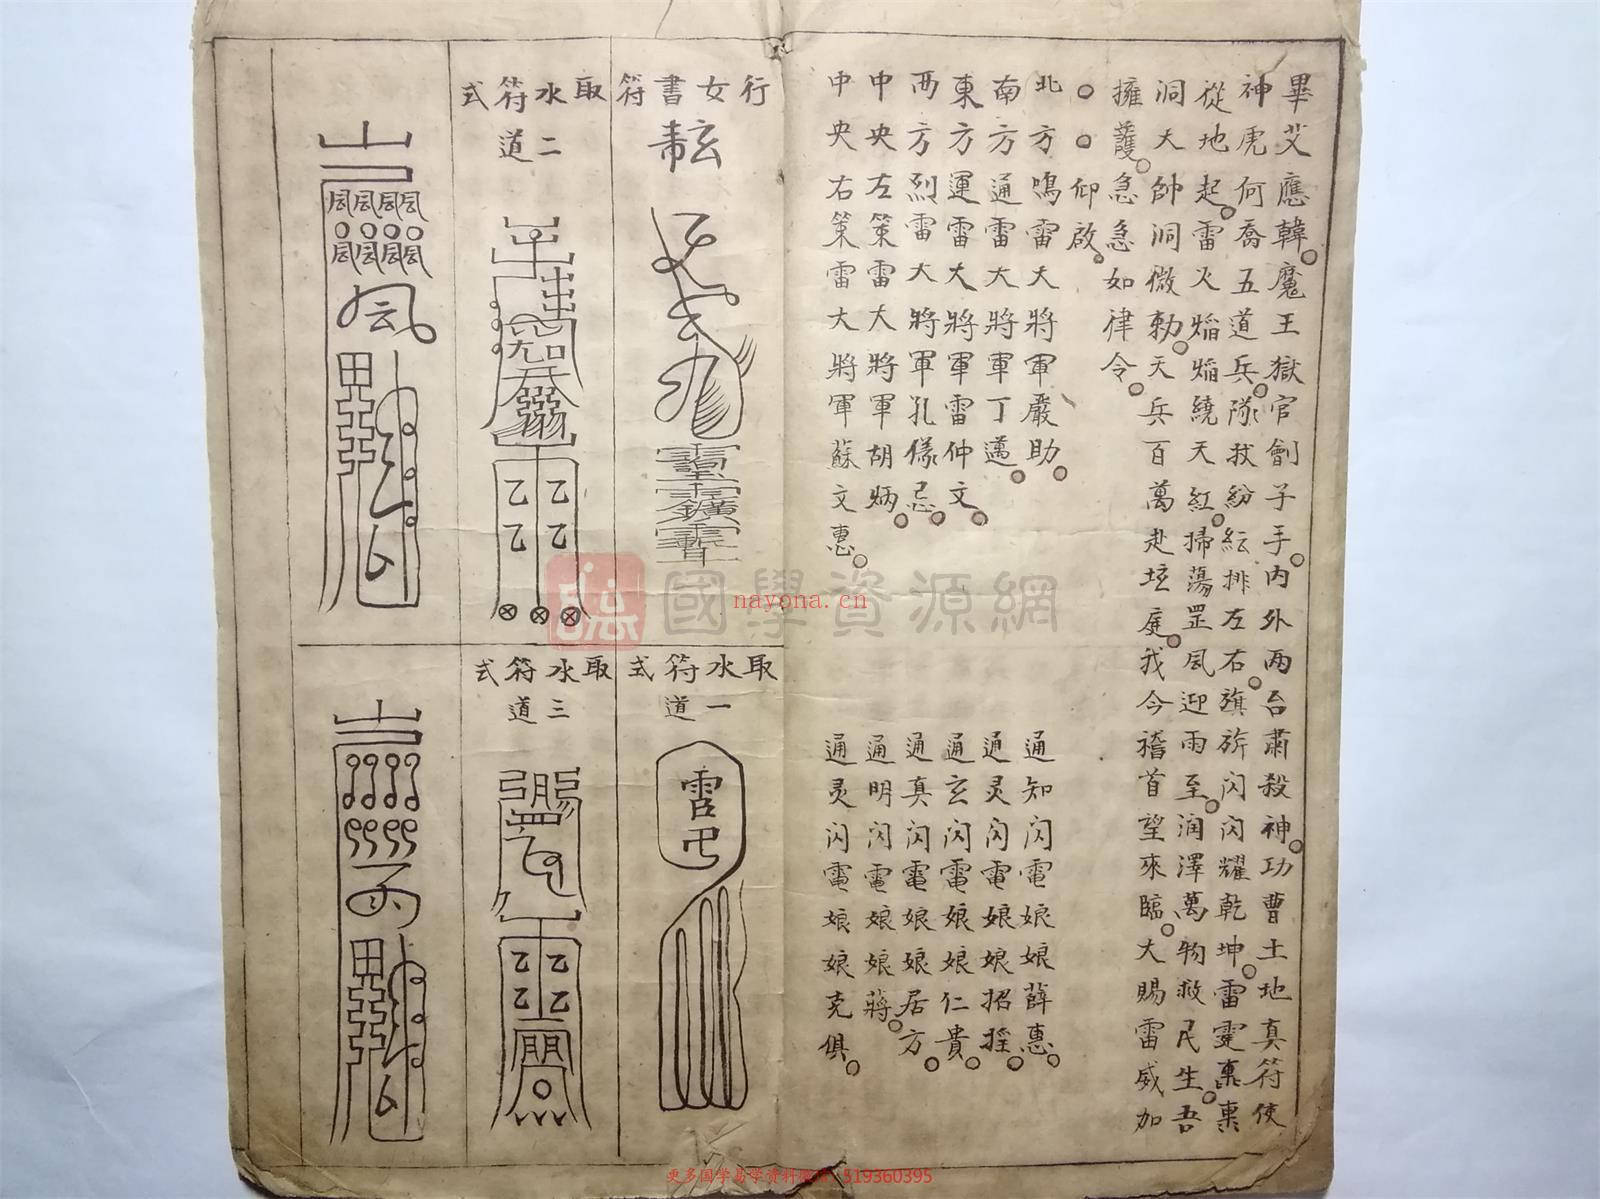 畢艾應韓魔王獄官劊子手內外两台肅殺神功曹土地真符使
神虎何喬五道兵隊扙紛紜排左右旗旂閃閃耀乾坤雷霆稟稟
從地起雷火焰焰繞天紅掃蕩罡風迎雨至润澤萬物救民生吾
洞大帥洞微勅天兵百萬赴坛庭我今稽首望來臨大賜雷威加
擁護急急如律令
仰啟
北方鳴雷大將軍嚴助 通知闪電娘娘薛惠
南方通雷大將軍丁邁 通灵闪電娘娘招摇
東方運雷大將軍雷仲文 通玄闪電娘娘仁貴
西方烈雷大將軍孔儀忌 通真闪電娘娘居方
中央左策雷大將軍胡炳 通明闪電娘娘蔣
中央右策雷大將軍蘇文惠 通灵闪電娘娘克俱
行女書符
取水符式
一道
取水符式
二道
取水符式
三道
國學資源網
nayona.cn
更多国学易学资料 519360395